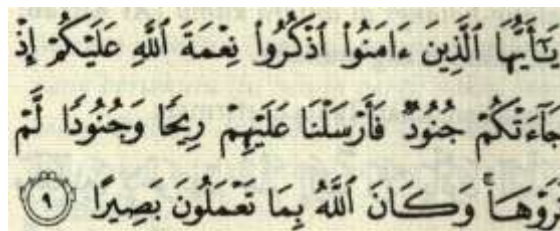 يَـٰٓأَيُّهَا ٱلَّذِينَ ءَامَنُوا۟ ٱذْكُرُوا۟ نِعْمَةَ ٱللَّهِ عَلَيْكُمْ إِذْ
جَآءَتْكُمْ جُنُودٌ فَأَرْسَلْنَا عَلَيْهِمْ رِيحًا وَجُنُودًا لَّمْ
تَرَوْهَا ۚ وَكَانَ ٱللَّهُ بِمَا تَعْمَلُونَ بَصِيرًا ٩